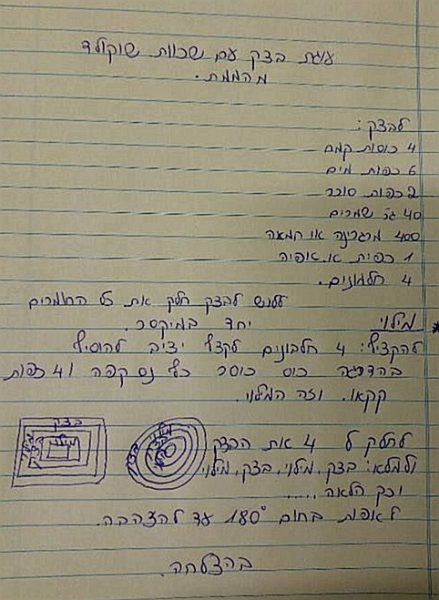 עוגת בצק עם שכבות שוקולד
מהממת.
לבצק:
4 כוסות קמח
6 כפות מים
2 כפות סוכר
40 גר שמרים
400 מרגרינה או חמאה
1 כפית א. אפיה
4 חלמונים.
ללוש לבצק חלק את כל החומרים
יחד במיקסר.
* מילוי
להקציף: 4 חלבונים לקצף יציב להוסיף
בהדרגה כוס סוכר כף נס קפה ו 4 כפות
קקאו. וזה המילוי.
לחלק ל 4 את הבצק
ולמלא: בצק, מילוי, בצק, מילוי
וכך הלאה.....
לאפות בחום 180° עד להצהבה.
בהצלחה.
בצק